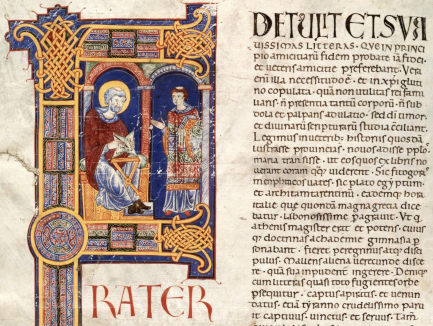 RATER
DETULIT ET SUA
uissimas litteras. que in princi
pio amicitiarū fidem probate iā fidei
et ueteris amicitie preferebant. Vera
enī illa necessitudo ē. et xp̄i glutī
no copulata. quā non utilitas rei fami
liaris. n̄ presentia tantū corporū. n̄ sub
dola et palpans adulatio. sed dī timor.
et diuinarū scripturarū studia conciliant.
Legimus in ueterib; historiis quosdā
lustrasse prouincias. nouos adisse pplōs.
maria transisse. ut eos quos ex libris no
uerant coram qq; uiderent. Sic pitagoras
memphiticos uates. sic plato egyptum.
et architam tarentinū. eandemq; horā
italie que quondā magna grecia dice
batur. laboriosissime peragrauit. Vt q
athenis magister erat et potens. cuius
q; doctrinas achademie gimnasia p
sonabant. fieret peregrinus atq; disci
pulus. Mallens aliena uerecunde disce
re. quā sua impudent ingerere. Deniq;
cum litteras quasi toto fugientes orbe
psequitur. captus a piratis. et uenun
datus. etiā tyranno crudelissimo paru
it. captiuus. uinctus. et seruus. Tam